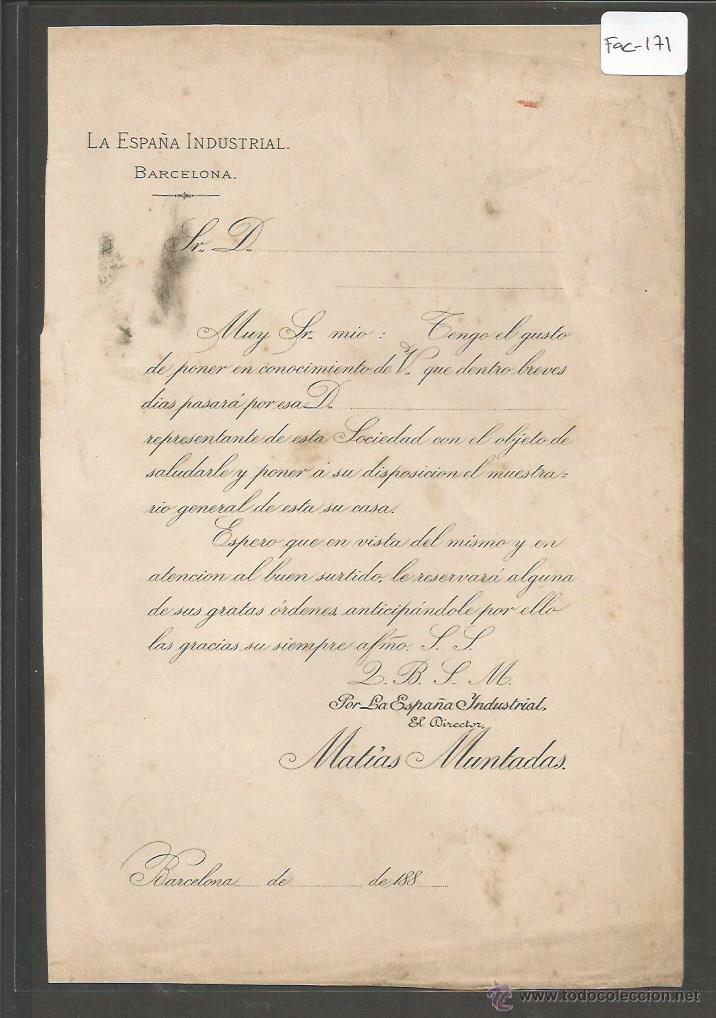 Fac-171
LA ESPAÑA INDUSTRIAL.
BARCELONA.
Sr. D.
Muy Sr. mio: Tengo el gusto
de poner en conocimiento de V. que dentro breves
dias pasará por esa D.
representante de esta Sociedad con el objeto de
saludarle y poner á su disposicion el muestra=
rio general de esta su casa.
Espero que en vista del mismo y en
atencion al buen surtido, le reservará alguna
de sus gratas órdenes anticipándole por ello
las gracias su siempre afmo. S. S.
Q. B. S. M.
Por La España Industrial,
El Director,
Matías Muntadas.
Barcelona de de 188
www.todocoleccion.net